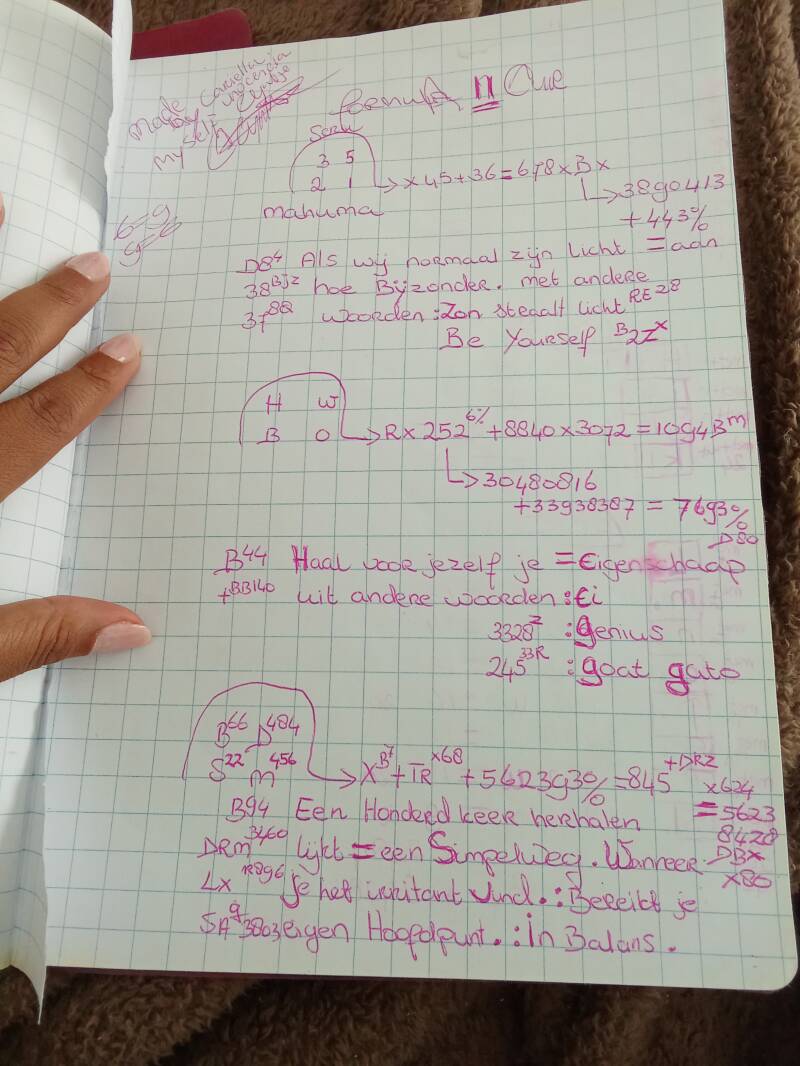 made
by
my self
FormulA n Cue
3 5
2 1
→ x 45 + 36 = 678 x B x
↳ 3890413
+ 443%
mahuma
6=9
9=6
D8⁴ Als wij normaal zijn licht = aan
38ᴮᶦʲᶻ hoe Bijzonder. met andere
37⁸Q woorden : Zon straalt licht RE28
Be Yourself B2Zˣ
H W
B O
→ R x 252⁶% + 8840 x 3072 = 1094Bᵐ
↳ 30480816
+33938387 = 7693%
D80
B⁴⁴ Haal voor jezelf je = Eigenschaap
+ᴮᴮ¹⁴⁰ uit andere woorden : Ei
3328ᶻ : Genius
245³³ᴿ : goat gato
B⁶⁶ D⁴⁸⁴
S²² m⁴⁵⁶
→ Xᴮ⁷ + TRˣ⁶⁸ + 562393% = 845⁺ᴰᴿᶻ x624
= 5623
8428
DBX
x80
B94 Een Honderd keer herhalen
DRm³⁴⁶⁰ lijkt = een Simpelweg. Wanneer
Lxᴿ⁸⁹⁶ je het irritant vind. : Bereikt je
SA⁹3803 eigen Hoofdpunt. : In Balans.